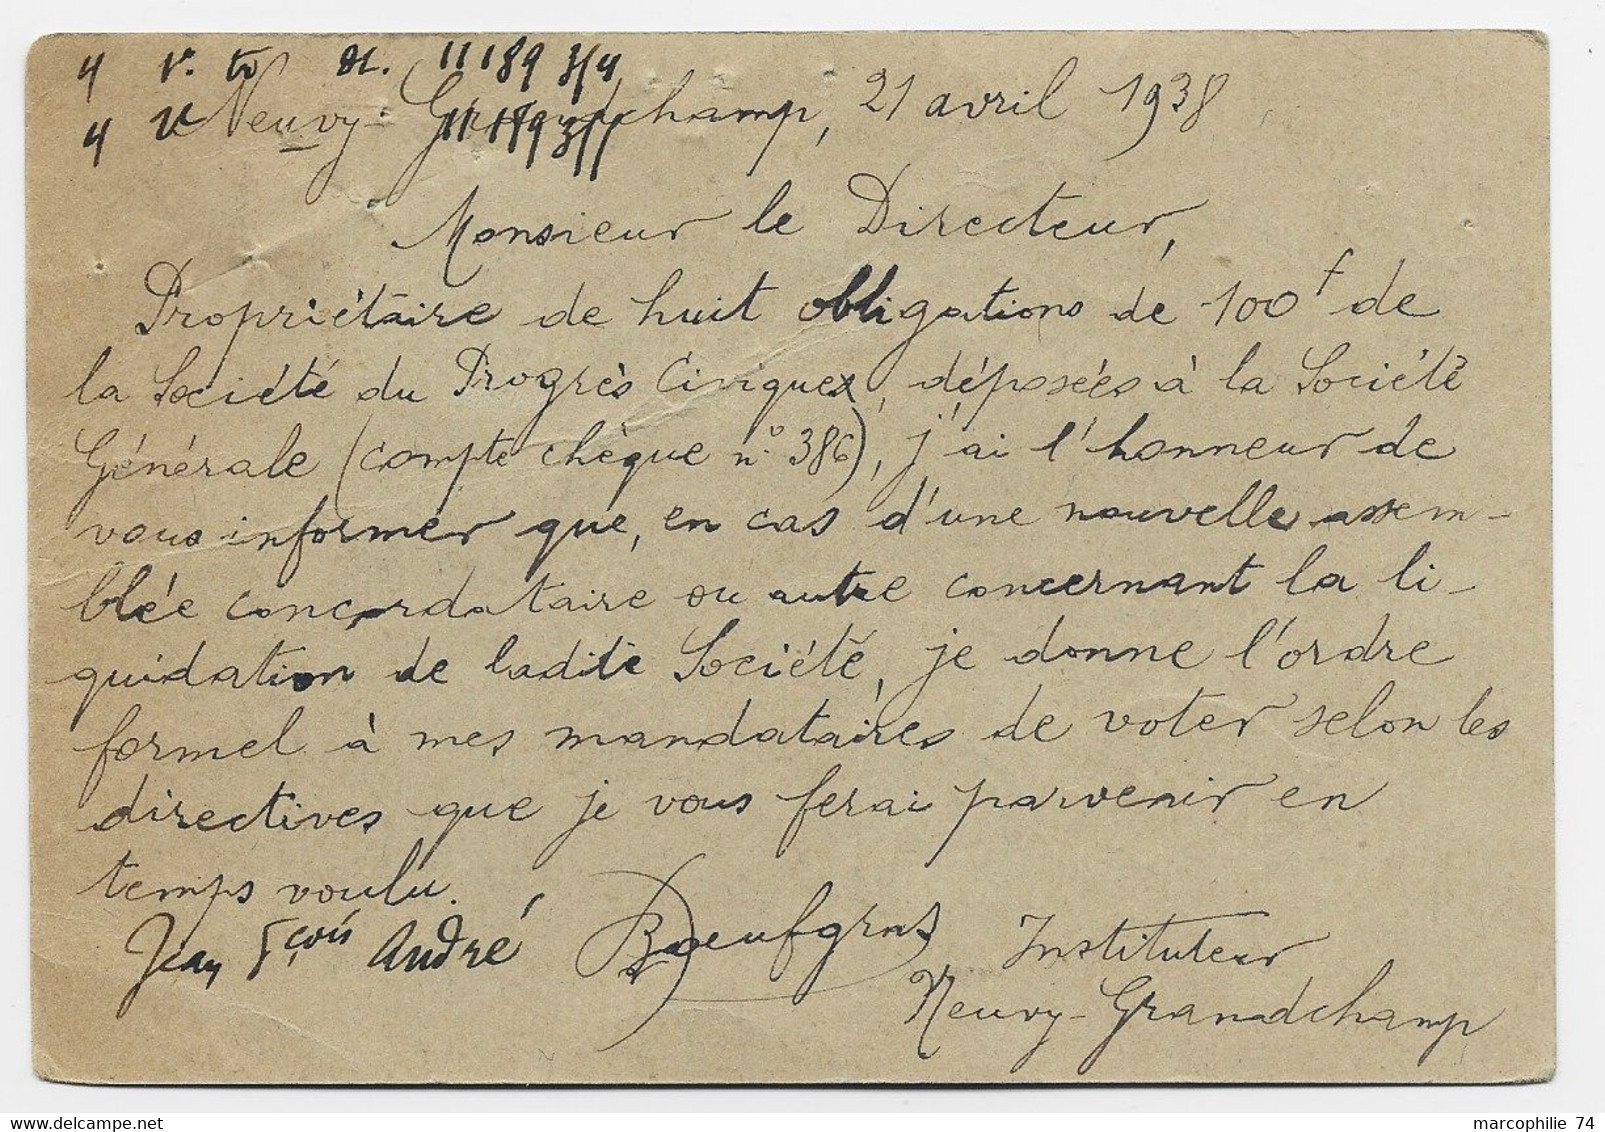 4 V. to ot. 11189 3/4
4 V 11189 3/4
Neuvy-Grandchamp, 21 avril 1938
Monsieur le Directeur,
Propriétaire de huit obligations de 100f de
la Société du Progrès Civique, déposées à la Société
Générale (compte chèque n° 386), j'ai l'honneur de
vous informer que, en cas d'une nouvelle assem-
blée concordataire ou autre concernant la li-
quidation de ladite Société, je donne l'ordre
formel à mes mandataires de voter selon les
directives que je vous ferai parvenir en
temps voulu.
Jean Fçois André Boeufgras Instituteur
Neuvy-Grandchamp
marcophilie 74